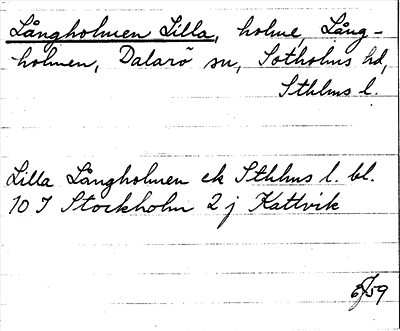 Långholmen Lilla, holme, Lång-
holmen, Dalarö sn, Sotholms hd,
Sthlms l.
Lilla Långholmen ek Sthlms l. bl.
10 I Stockholm 2 j Kattvik
6/59